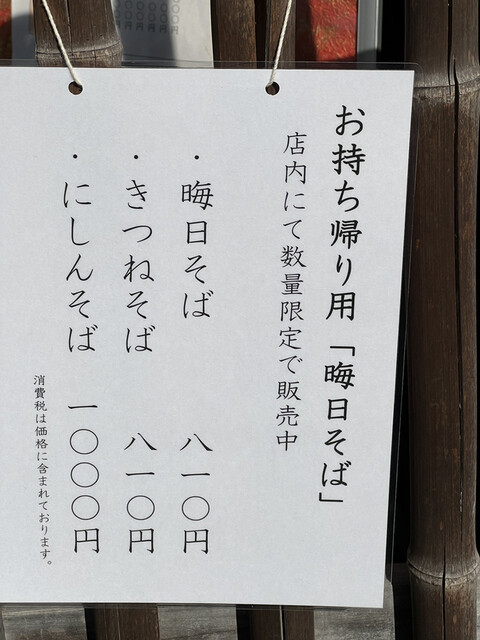 お持ち帰り用「晦日そば」
店内にて数量限定で販売中
・晦日そば 八一〇円
・きつねそば 八一〇円
・にしんそば 一〇〇〇円
消費税は価格に含まれております。